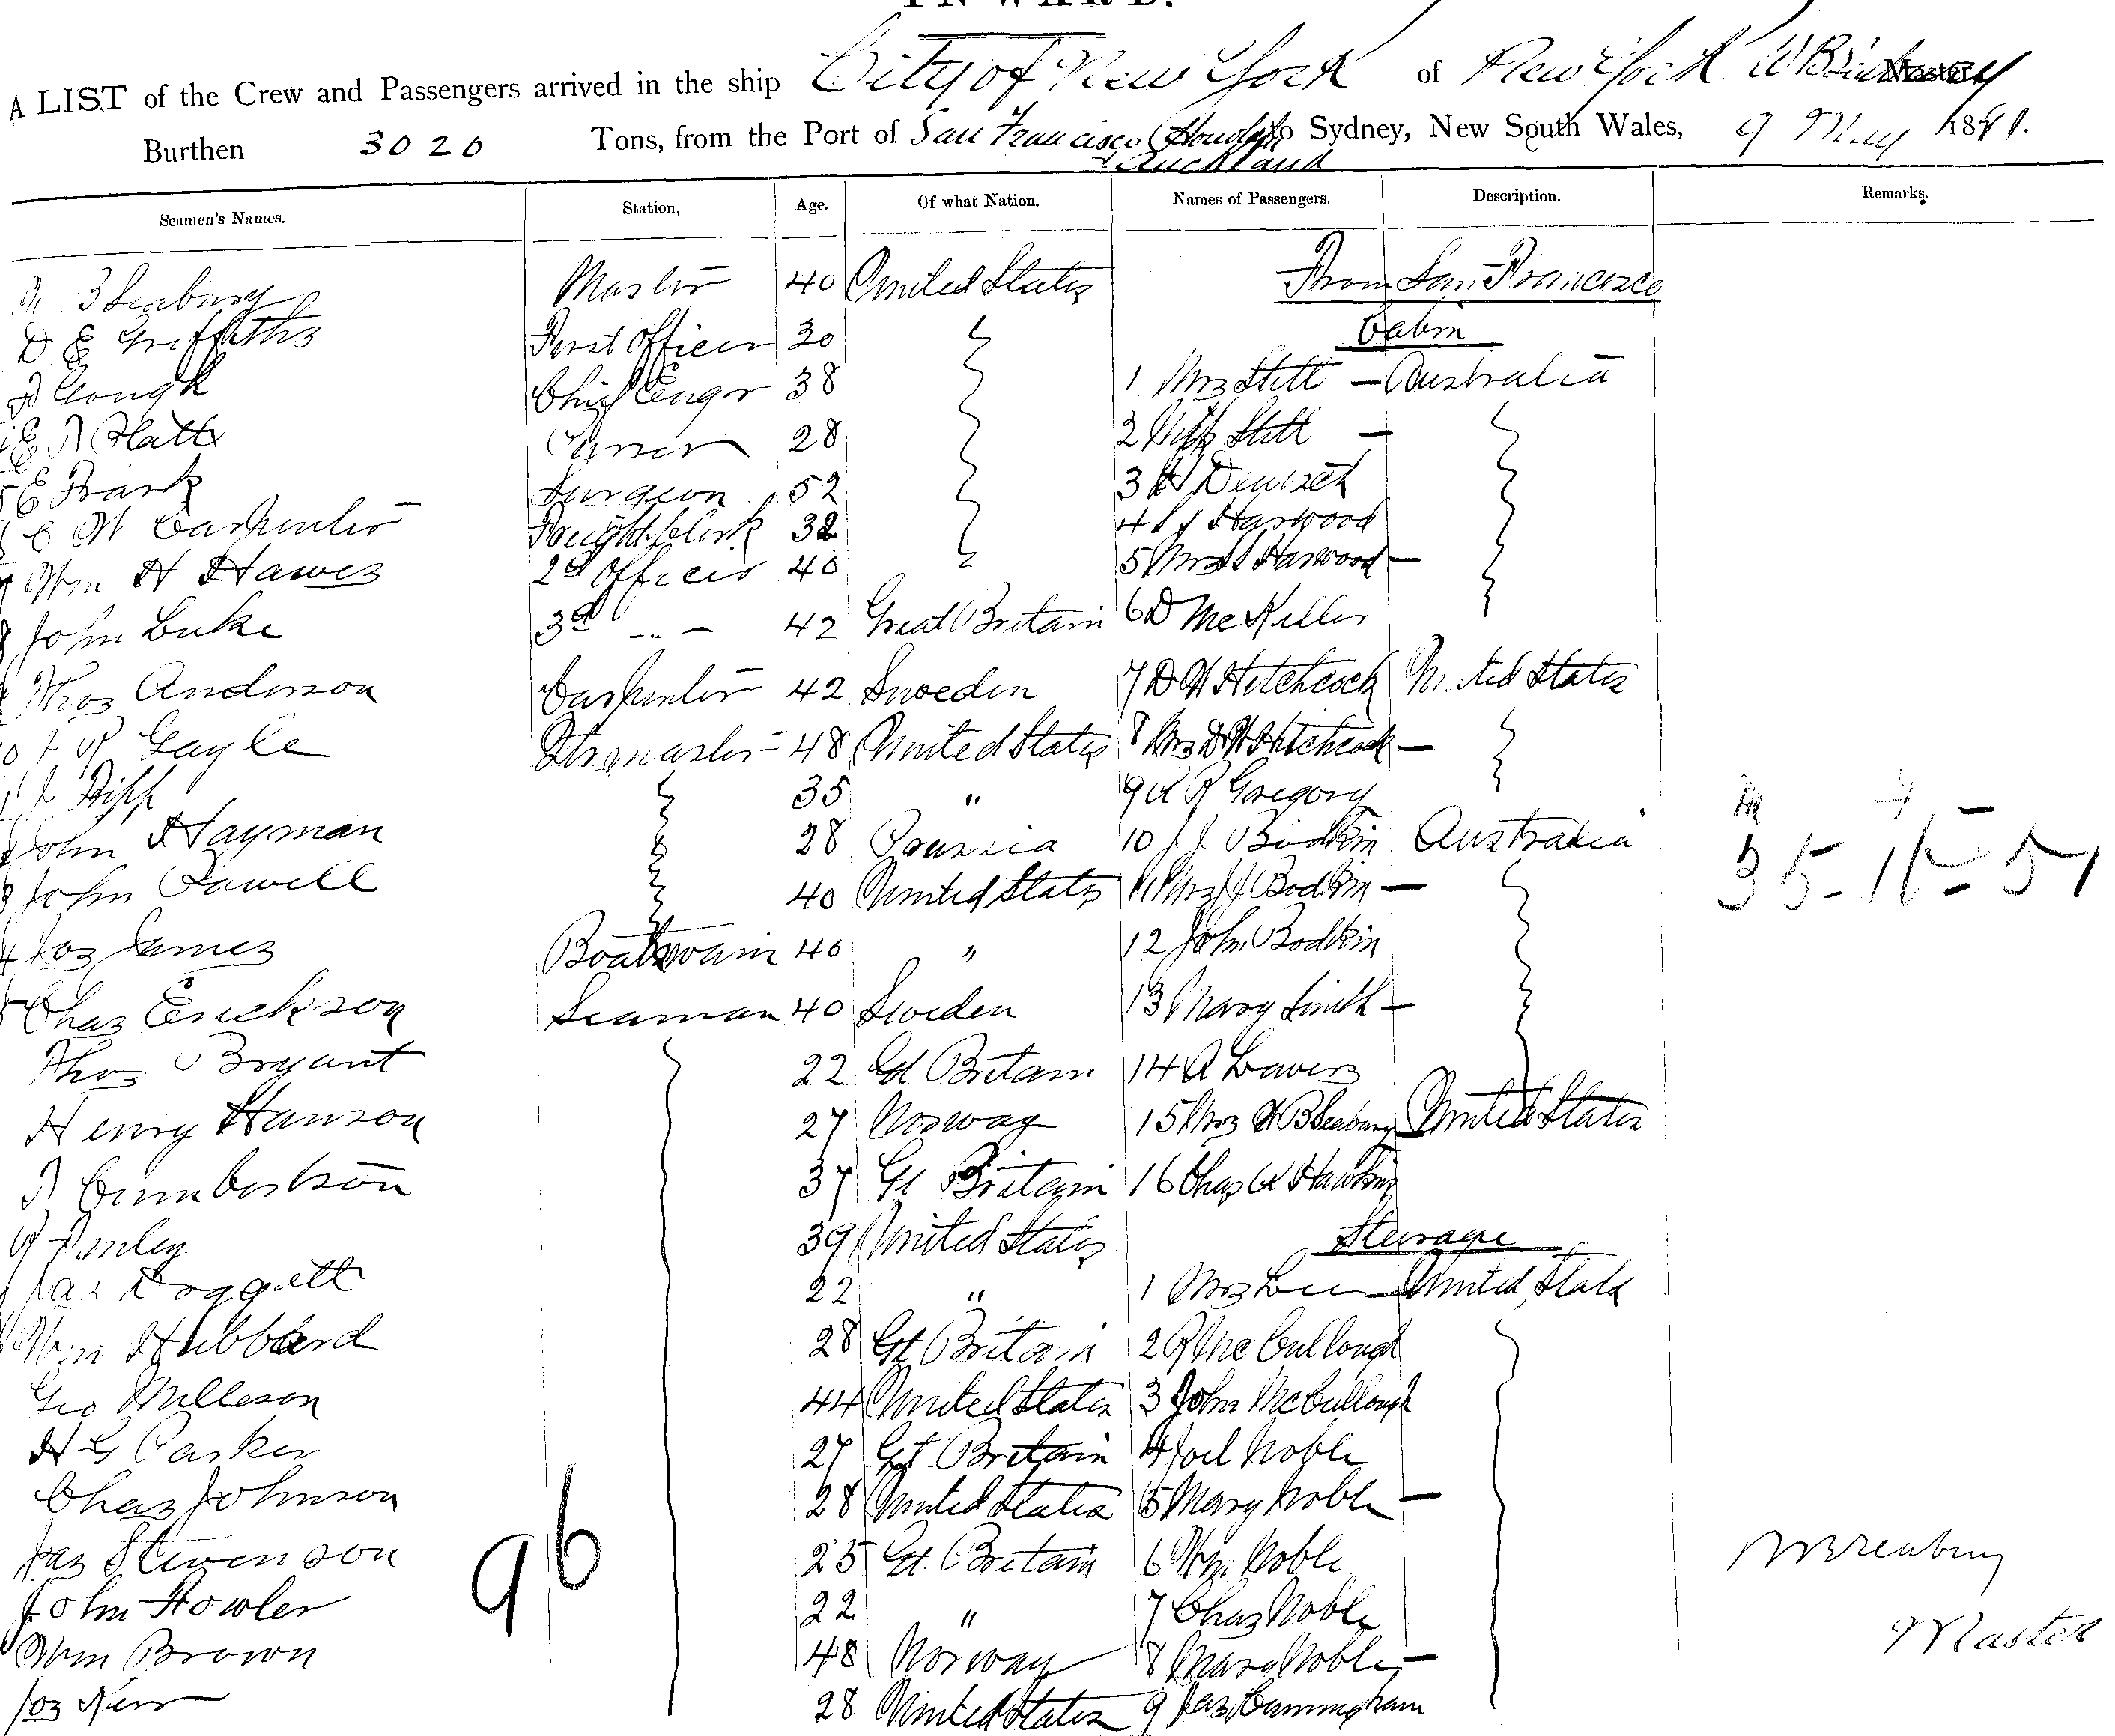 INWARD.
A LIST of the Crew and Passengers arrived in the ship City of New York of New York W B Seabury Master
Burthen 3020 Tons, from the Port of San Francisco Honolulu & Auckland to Sydney, New South Wales, 9 May 1881.
Seamen's Names. Station, Age. Of what Nation. Names of Passengers. Description. Remarks.
B Seabury Master 40 United States From San Francisco
D E Griffiths First Officer 30 Cabin
Gough Chief Engr 38 1 Mrs Stitt — Australia
E Platt 28 2 Miss Stitt —
E Surgeon 52 3
C W Carpenter Freight Clerk 32 4 Harwood
Wm H Hawes 2d Officer 40 5 Mrs Harwood —
John Luke 3d " 42 Great Britain 6 D McKellar
Thos Anderson Carpenter 42 Sweden 7 D H Hitchcock United States
Gayle 48 United States 8 Mrs D H Hitchcock —
35 " 9 Gregory
John Hayman 28 Prussia 10 J J Bodkin Australia
John Powell 40 United States 11 Mrs J J Bodkin —
Jos James Boatswain 40 " 12 John Bodkin
Chas Erickson Seaman 40 Sweden 13 Mary Smith —
Thos Bryant 22 Gt Britain 14 A
Henry Hanson 27 Norway 15 Mrs W B Seabury United States
37 Gt Britain 16 Chas A Hawkins
39 United States Steerage
Jas Doggett 22 " 1 Mrs Lee — United States
Wm Hubbard 28 Gt Britain 2 R McCullough
Geo Milleson 44 United States 3 John McCullough
H G Parker 27 Gt Britain 4 Joel Noble
Chas Johnson 28 United States 5 Mary Noble —
Jas Stevenson 25 Gt Britain 6 Wm Noble
John Fowler 22 " 7 Chas Noble
Wm Brown 48 Norway 8 Mary Noble —
Jos 28 United States 9 Jas Cunningham
35-16-51
96
W B Seabury
Master